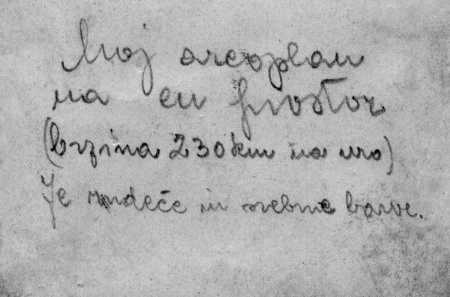 Moj areoplan
na en prostor
(brzina 230 km na uro)
Je rudeče in srebrne barve.